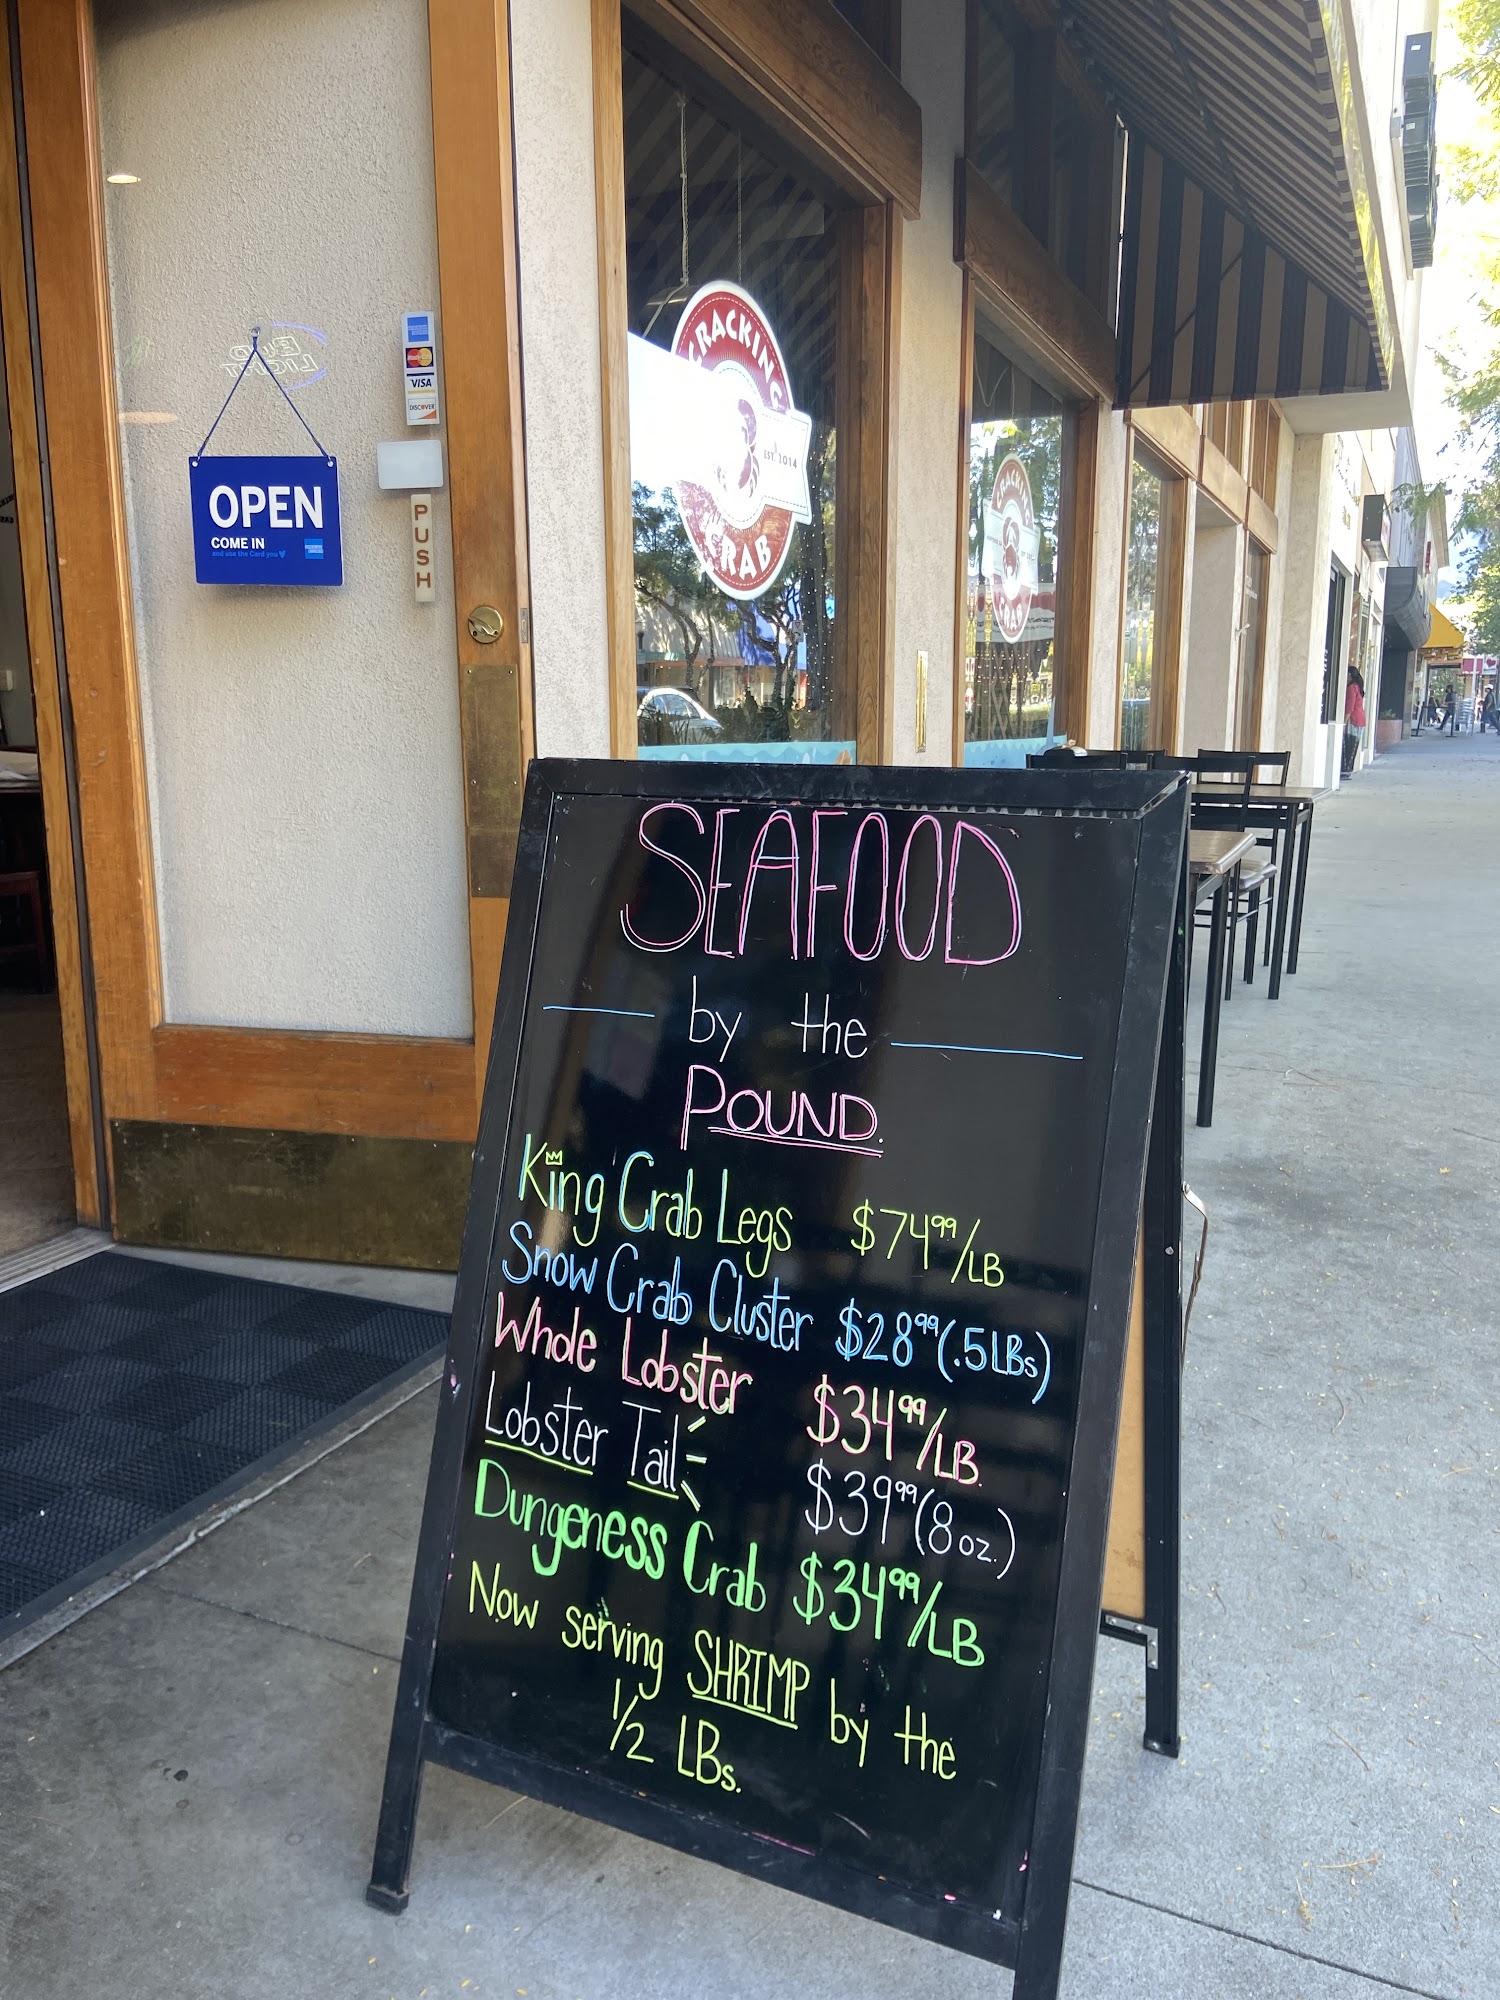 BUD
LIGHT
OPEN
COME IN
and use the Card you
VISA
DISCOVER
PUSH
CRACKING
EST. 2014
CRAB
CRACKING
CRAB
SEAFOOD
by the
POUND.
King Crab Legs $74.99/LB
Snow Crab Cluster $28.99 (.5LBs)
Whole Lobster $34.99/LB.
Lobster Tail $39.99 (8 oz.)
Dungeness Crab $34.99/LB
Now serving SHRIMP by the
1/2 LBs.